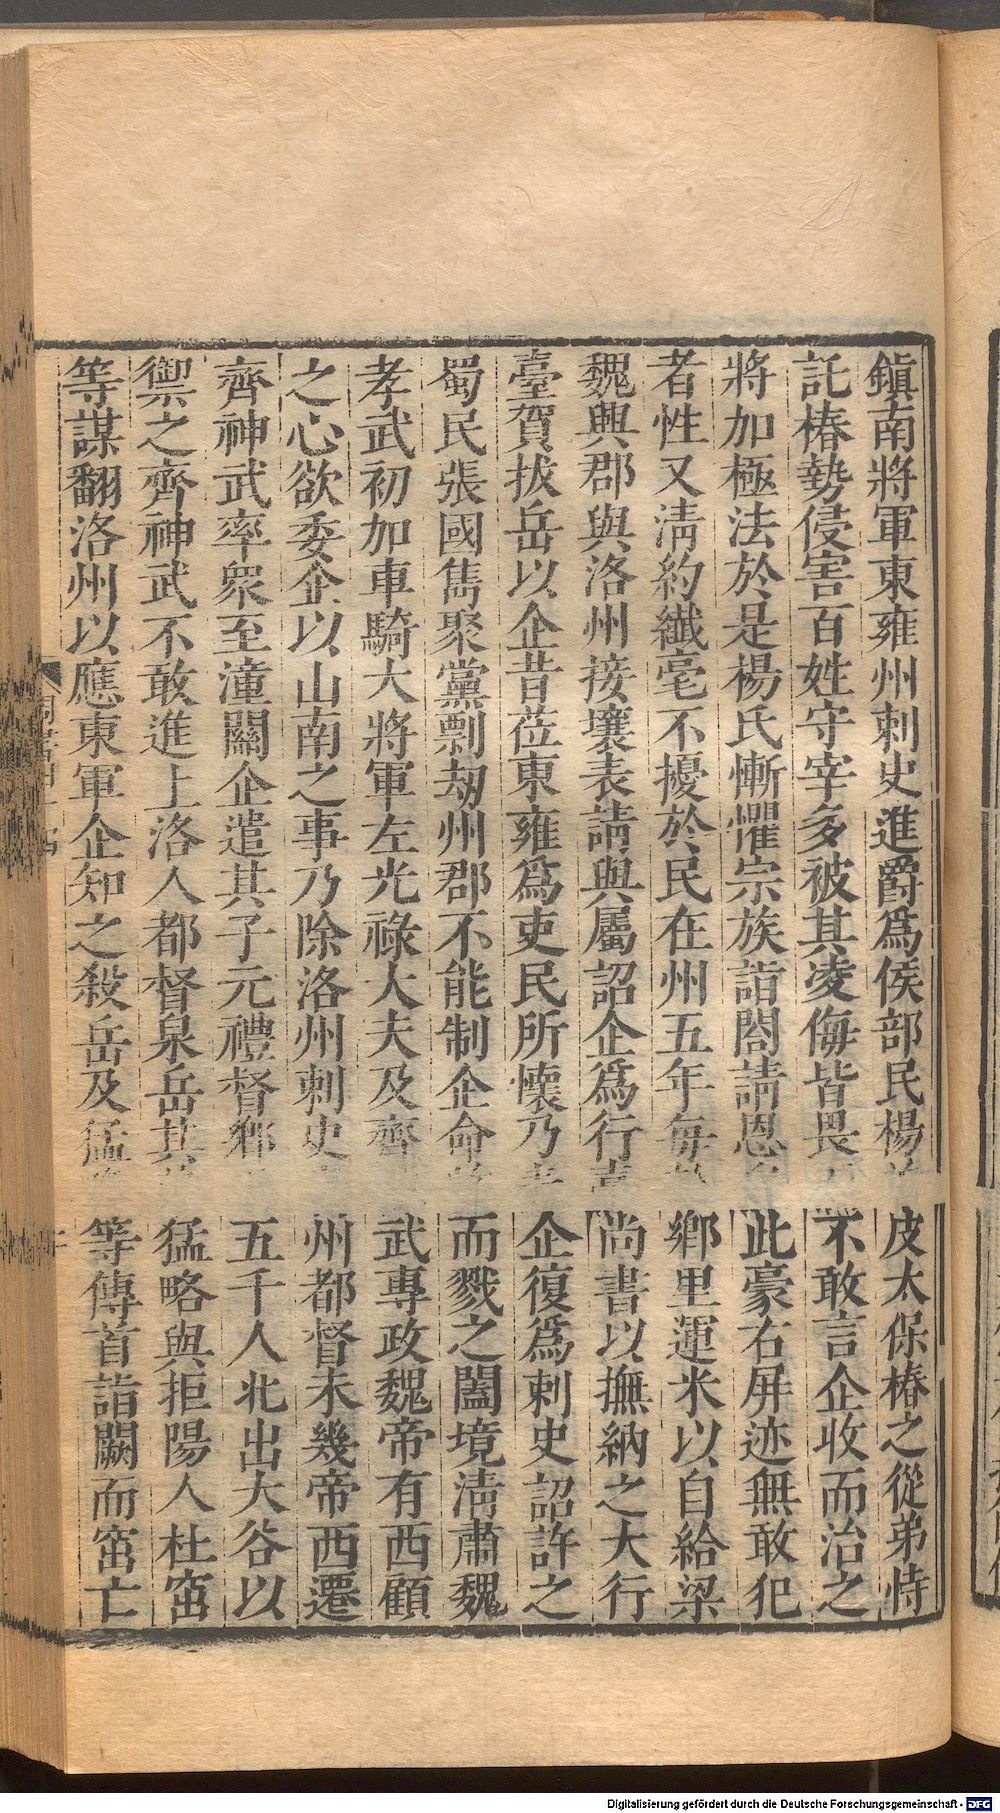 鎮南將軍東雍州刺史進爵爲侯部民楊皮太保椿之從弟恃
託椿勢侵害百姓守宰多被其凌侮皆畏不敢言企收而治之
將加極法於是楊氏慚懼宗族詣閤請恩此豪右屏迹無敢犯
者性又淸約纖毫不擾於民在州五年每鄉里運米以自給梁
魏興郡與洛州接壤表請與屬詔企爲行尚書以撫納之大行
臺賀拔岳以企昔莅東雍爲吏民所懷乃企復爲刺史詔許之
蜀民張國雋聚黨剽劫州郡不能制企命而戮之闔境淸肅魏
孝武初加車騎大將軍左光祿大夫及齊武專政魏帝有西顧
之心欲委企以山南之事乃除洛州刺史州都督未幾帝西遷
齊神武率衆至潼關企遣其子元禮督鄉五千人北出大谷以
禦之齊神武不敢進上洛人都督泉岳其猛略與拒陽人杜窋
等謀翻洛州以應東軍企知之殺岳及猛等傳首詣闕而窋亡
Digitalisierung gefördert durch die Deutsche Forschungsgemeinschaft - DFG